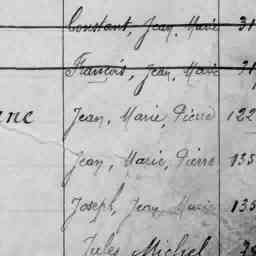 Constant, Jean, Marie 31
François, Jean, Marie
nne Jean, Marie, Pierre 122
Jean, Marie, Pierre 135
Joseph, Jean, Marie 135
Jules Michel